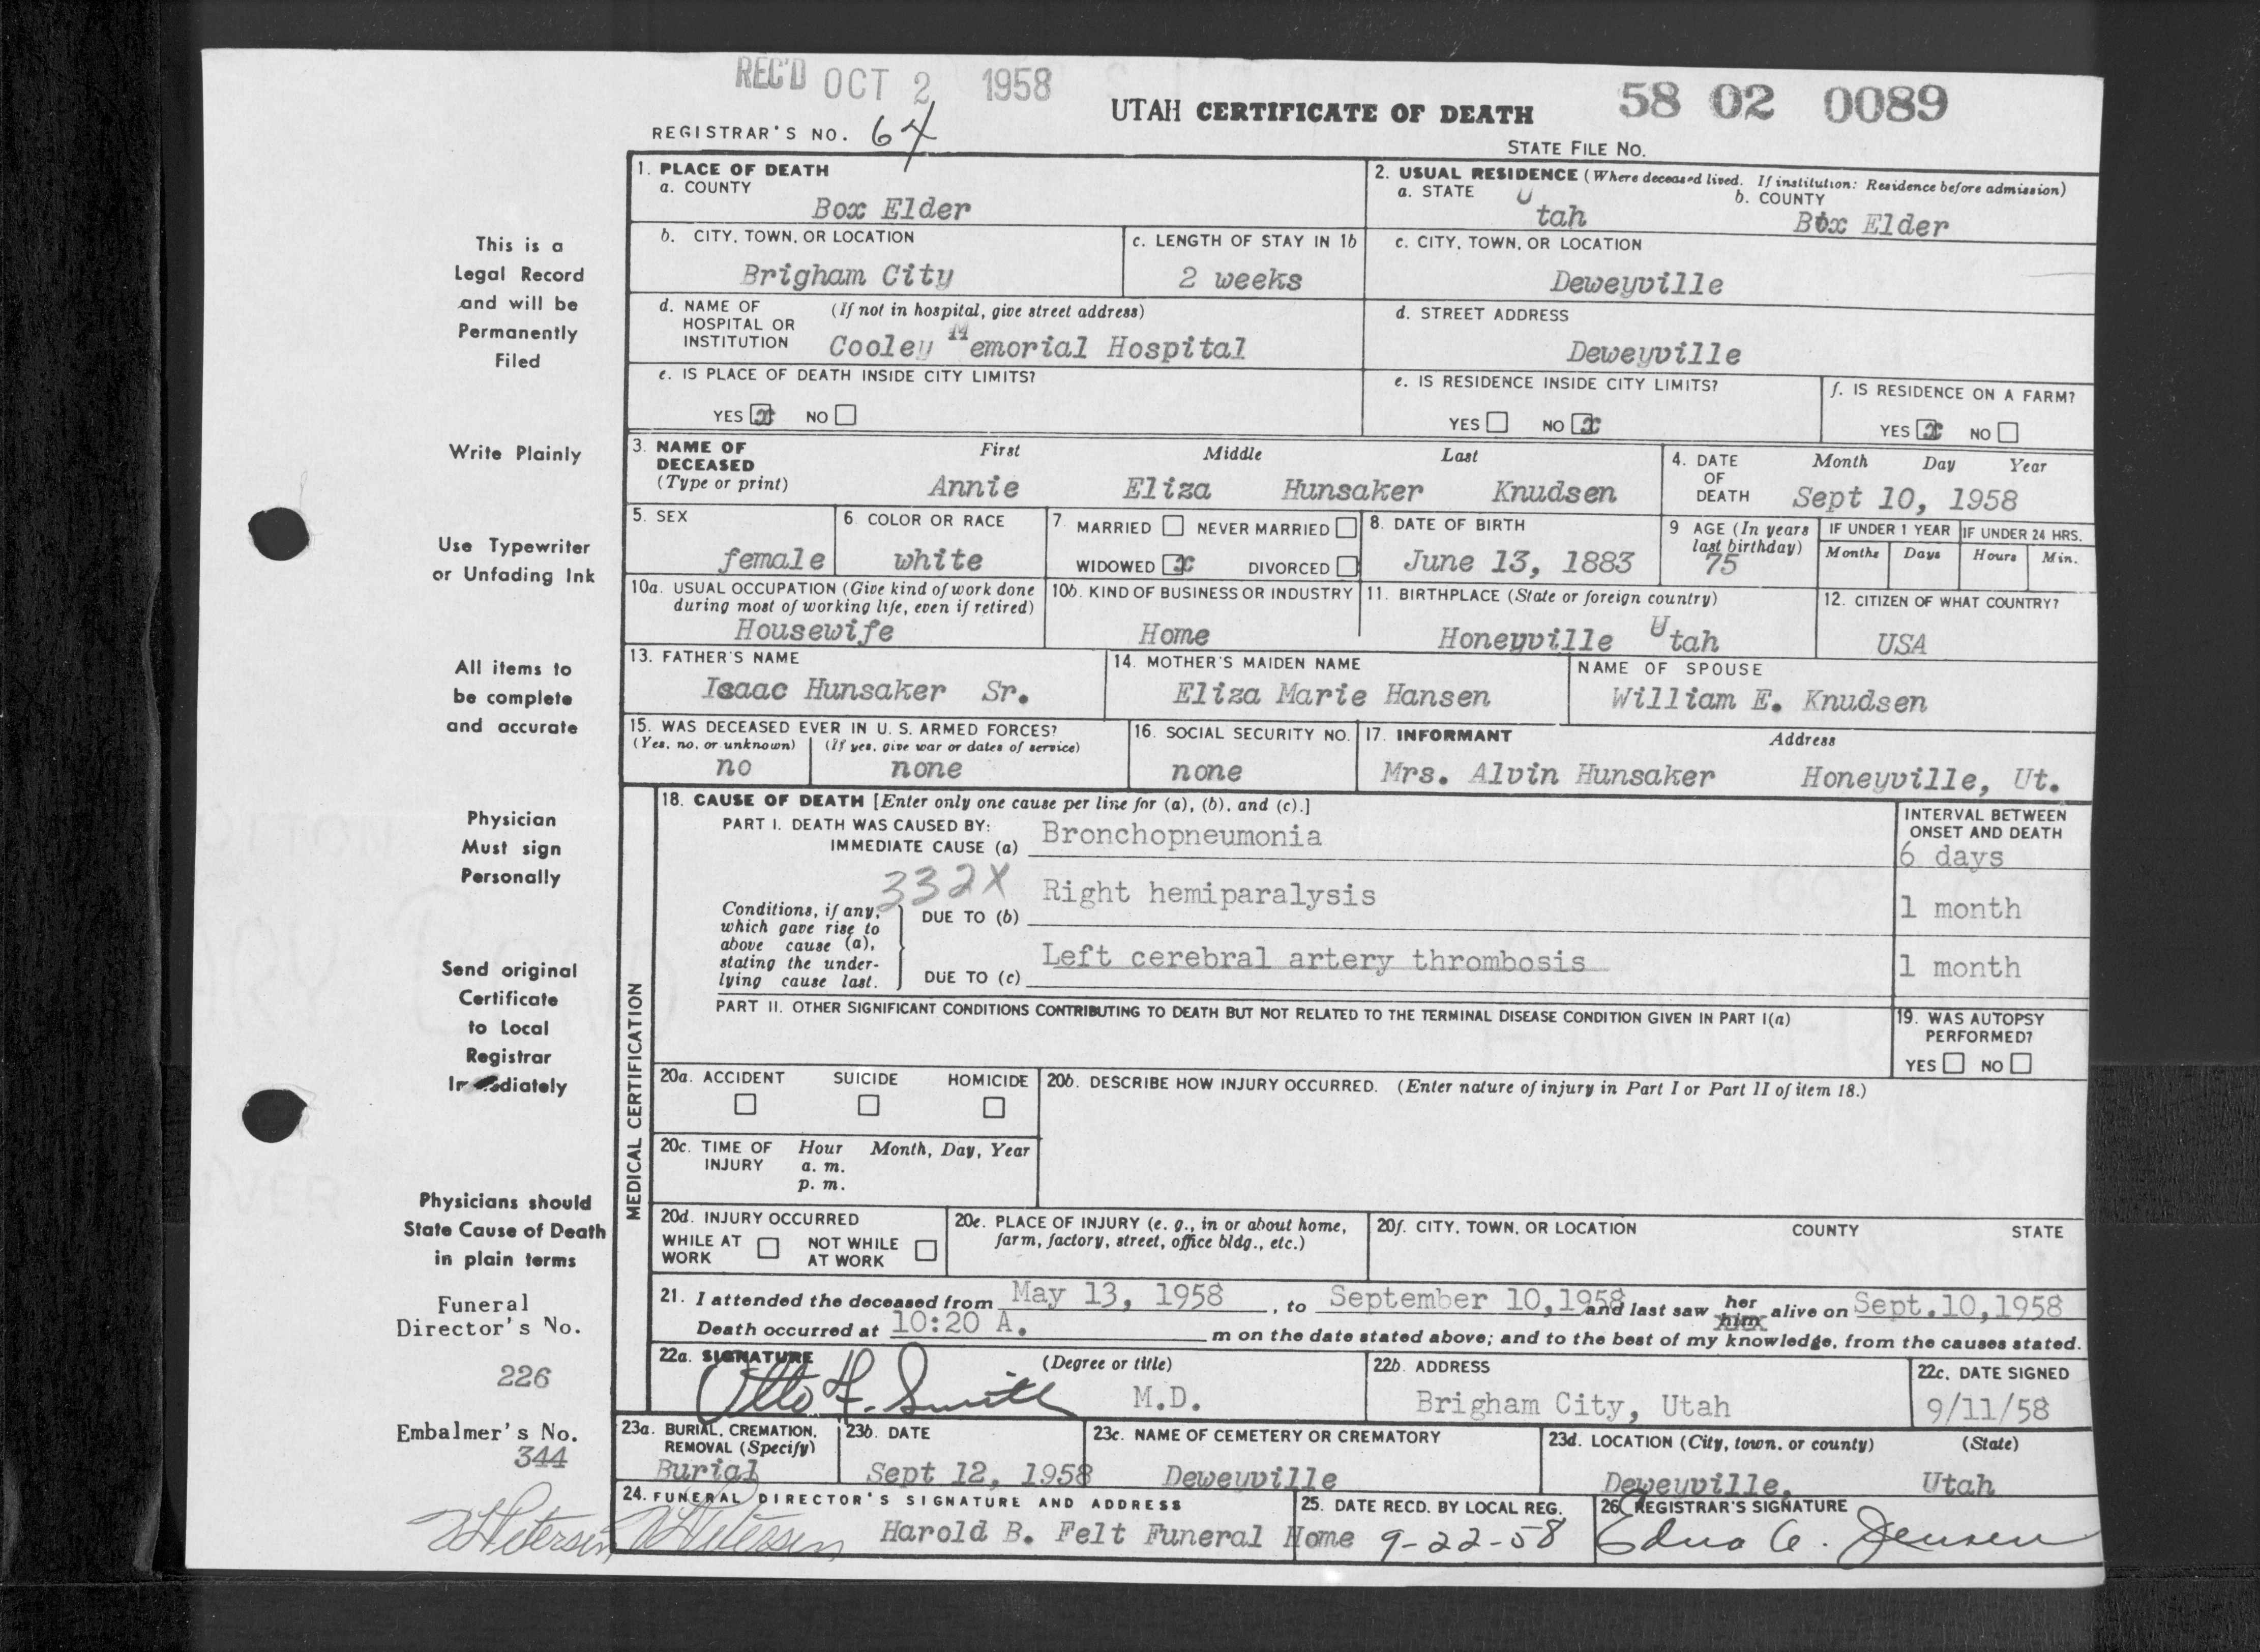 REC'D OCT 2 1958
UTAH CERTIFICATE OF DEATH
58 02 0089
REGISTRAR'S NO. 64
STATE FILE NO.
This is a
Legal Record
and will be
Permanently
Filed
Write Plainly
Use Typewriter
or Unfading Ink
All items to
be complete
and accurate
Physician
Must sign
Personally
Send original
Certificate
to Local
Registrar
Physicians should
State Cause of Death
in plain terms
Funeral
Director's No.
226
Embalmer's No.
344
1. PLACE OF DEATH
a. COUNTY
Box Elder
2. USUAL RESIDENCE (Where deceased lived. If institution: Residence before admission)
a. STATE Utah
b. COUNTY Box Elder
b. CITY, TOWN, OR LOCATION
Brigham City
c. LENGTH OF STAY IN 1b
2 weeks
c. CITY, TOWN, OR LOCATION
Deweyville
d. NAME OF HOSPITAL OR INSTITUTION (If not in hospital, give street address)
Cooley Memorial Hospital
d. STREET ADDRESS
Deweyville
e. IS PLACE OF DEATH INSIDE CITY LIMITS?
YES x NO
e. IS RESIDENCE INSIDE CITY LIMITS?
YES NO x
f. IS RESIDENCE ON A FARM?
YES x NO
3. NAME OF DECEASED (Type or print)
First Middle Last
Annie Eliza Hunsaker Knudsen
4. DATE OF DEATH
Month Day Year
Sept 10, 1958
5. SEX
female
6. COLOR OR RACE
white
7. MARRIED NEVER MARRIED
WIDOWED x DIVORCED
8. DATE OF BIRTH
June 13, 1883
9 AGE (In years last birthday)
75
IF UNDER 1 YEAR
Months Days
IF UNDER 24 HRS.
Hours Min.
10a. USUAL OCCUPATION (Give kind of work done during most of working life, even if retired)
Housewife
10b. KIND OF BUSINESS OR INDUSTRY
Home
11. BIRTHPLACE (State or foreign country)
Honeyville Utah
12. CITIZEN OF WHAT COUNTRY?
USA
13. FATHER'S NAME
Isaac Hunsaker Sr.
14. MOTHER'S MAIDEN NAME
Eliza Marie Hansen
NAME OF SPOUSE
William E. Knudsen
15. WAS DECEASED EVER IN U. S. ARMED FORCES?
(Yes, no, or unknown) (If yes, give war or dates of service)
no none
16. SOCIAL SECURITY NO.
none
17. INFORMANT Address
Mrs. Alvin Hunsaker Honeyville, Ut.
MEDICAL CERTIFICATION
18. CAUSE OF DEATH [Enter only one cause per line for (a), (b), and (c).]
INTERVAL BETWEEN ONSET AND DEATH
PART I. DEATH WAS CAUSED BY:
IMMEDIATE CAUSE (a) Bronchopneumonia 6 days
332X
Conditions, if any, which gave rise to above cause (a), stating the underlying cause last.
DUE TO (b) Right hemiparalysis 1 month
DUE TO (c) Left cerebral artery thrombosis 1 month
PART II. OTHER SIGNIFICANT CONDITIONS CONTRIBUTING TO DEATH BUT NOT RELATED TO THE TERMINAL DISEASE CONDITION GIVEN IN PART I(a)
19. WAS AUTOPSY PERFORMED?
YES NO
20a. ACCIDENT SUICIDE HOMICIDE
20b. DESCRIBE HOW INJURY OCCURRED. (Enter nature of injury in Part I or Part II of item 18.)
20c. TIME OF INJURY Hour Month, Day, Year
a. m.
p. m.
20d. INJURY OCCURRED
WHILE AT WORK NOT WHILE AT WORK
20e. PLACE OF INJURY (e. g., in or about home, farm, factory, street, office bldg., etc.)
20f. CITY, TOWN, OR LOCATION COUNTY STATE
21. I attended the deceased from May 13, 1958, to September 10, 1958 and last saw her him alive on Sept. 10, 1958
Death occurred at 10:20 A. m on the date stated above; and to the best of my knowledge, from the causes stated.
22a. SIGNATURE (Degree or title)
Otto F. Smith M.D.
22b. ADDRESS
Brigham City, Utah
22c. DATE SIGNED
9/11/58
23a. BURIAL, CREMATION, REMOVAL (Specify)
Burial
23b. DATE
Sept 12, 1958
23c. NAME OF CEMETERY OR CREMATORY
Deweyville
23d. LOCATION (City, town, or county) (State)
Deweyville, Utah
24. FUNERAL DIRECTOR'S SIGNATURE AND ADDRESS
Harold B. Felt Funeral Home
25. DATE RECD. BY LOCAL REG.
9-22-58
26. REGISTRAR'S SIGNATURE
Edna C. Jensen